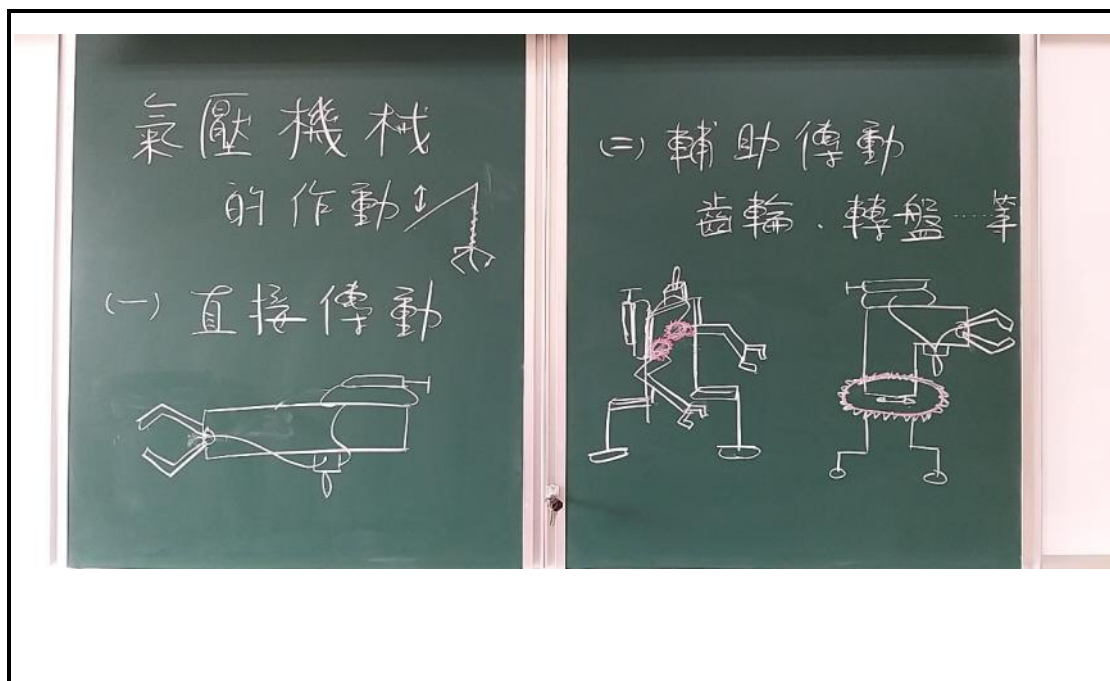 氣壓機械
的作動
(一) 直接傳動
(二) 輔助傳動
齒輪．轉盤……等